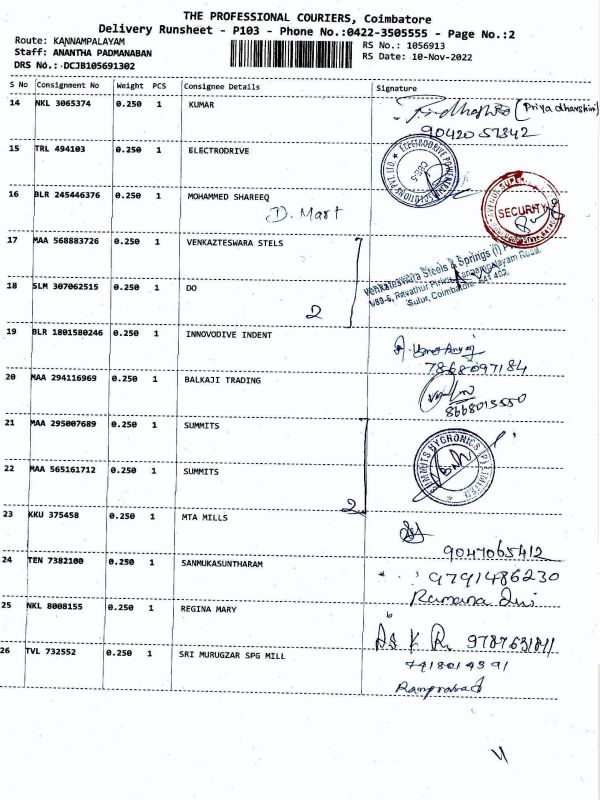 THE PROFESSIONAL COURIERS, Coimbatore
Delivery Runsheet - P103 - Phone No.:0422-3505555 - Page No.:2
Route: KANNAMPALAYAM
RS No.: 1056913
Staff: ANANTHA PADMANABAN
RS Date: 10-Nov-2022
DRS No.: DCJB105691302
S No Consignment No Weight PCS Consignee Details Signature
14 NKL 3065374 0.250 1 KUMAR (Priyadharshini)
15 TRL 494103 0.250 1 ELECTRODRIVE
16 BLR 245446376 0.250 1 MOHAMMED SHAREEQ
D. Mart
SECURITY
17 MAA 568883726 0.250 1 VENKAZTESWARA STELS
Venkateswara Steels & Springs (I)
18 SLM 307062515 0.250 1 DO
Sulur, Coimbatore
2
19 BLR 1801580246 0.250 1 INNOVODIVE INDENT
7868097184
20 MAA 294116969 0.250 1 BALKAJI TRADING
8668015550
21 MAA 295007689 0.250 1 SUMMITS
22 MAA 565161712 0.250 1 SUMMITS
SUMMITS HYGRONICS (P) LIMITED
2
23 KKU 375458 0.250 1 MTA MILLS
9047065412
24 TEN 7382100 0.250 1 SANMUKASUNTHARAM
9791486230
25 NKL 8008155 0.250 1 REGINA MARY
26 TVL 732552 0.250 1 SRI MURUGZAR SPG MILL